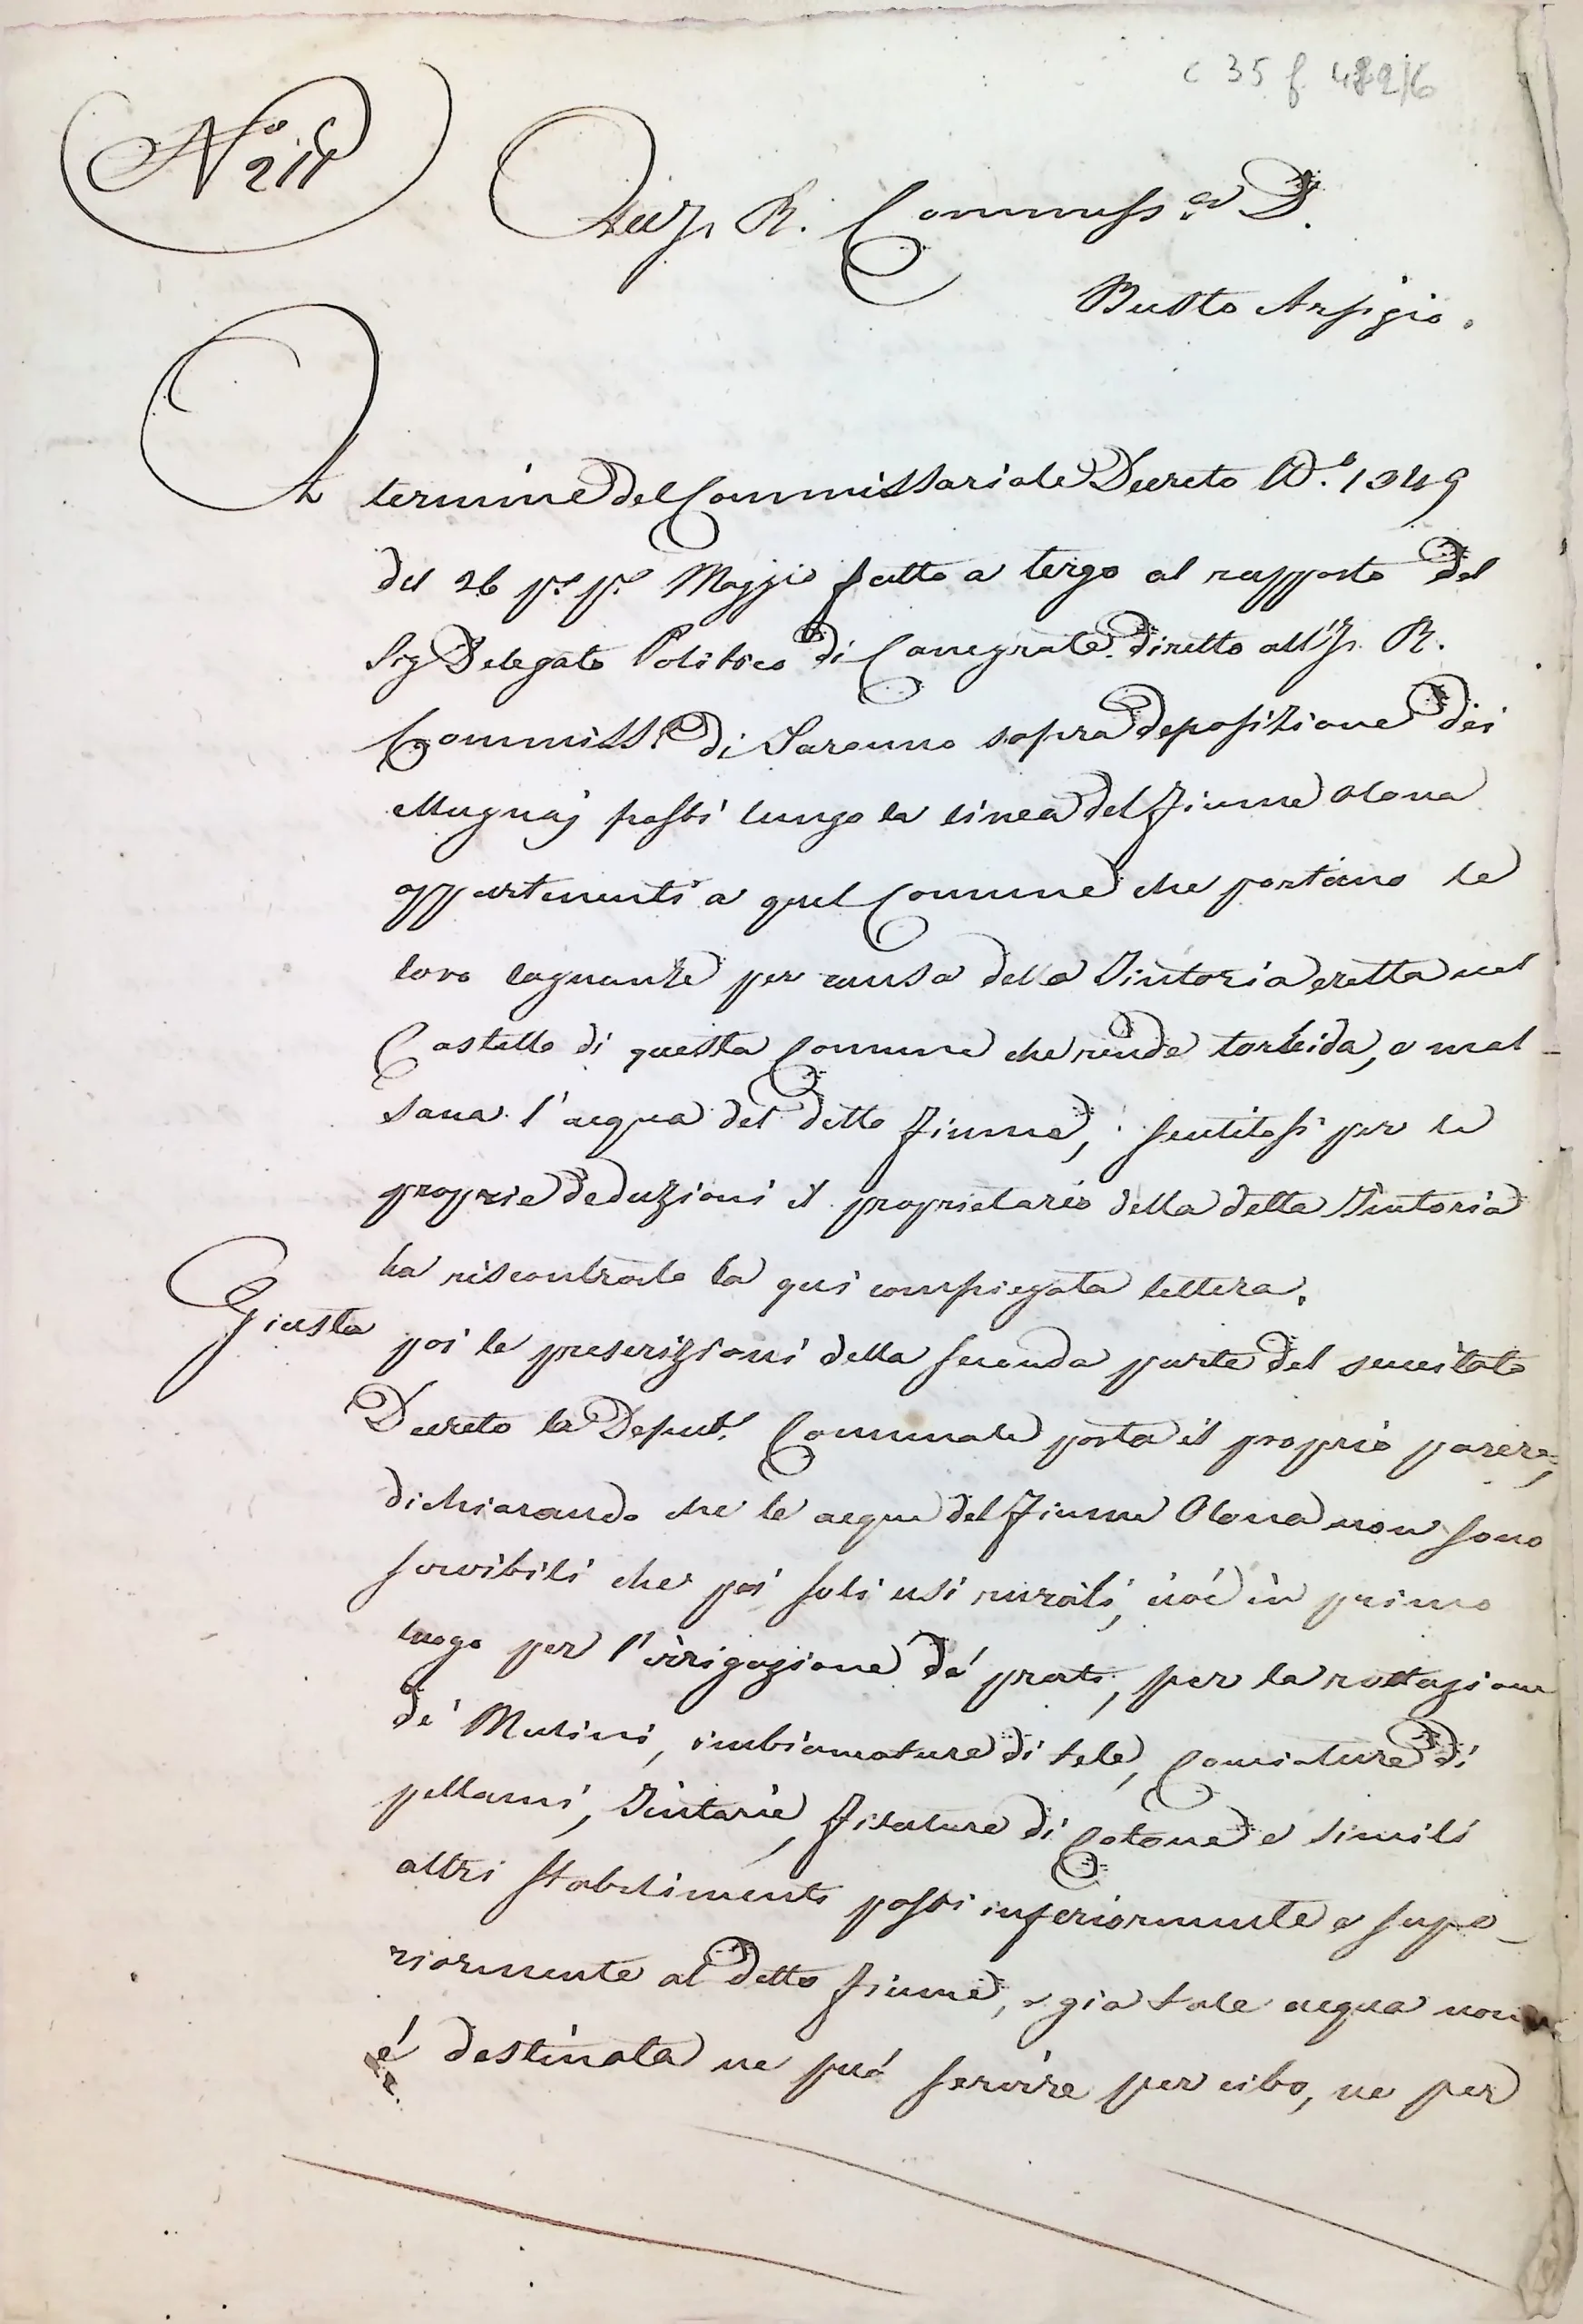 c 35 f. 482/6
N.o 211
All'I. R. Commiss.o D.
Busto Arsizio.
A termine del Commissariale Decreto N.o 1349
del 26 p.o p.o Maggio fatto a tergo al rapporto del
Sig Delegato Politico di Canegrate diretto all'I. R.
Commiss.o di Saronno sopra deposizione dei
Mugnaj posti lungo la linea del fiume Olona
appartenenti a quel Comune che portano le
loro lagnanze per causa della Tintoria eretta nel
Castello di questa Comune che rende torbida, e mal-
sana l'acqua del detto fiume, sentitosi per le
proprie deduzioni il proprietario della detta Tintoria
ha riscontrato la qui compiegata lettera.
Giusta poi le prescrizioni della seconda parte del succitato
Decreto la Deput.e Comunale porta il proprio parere,
dichiarando che le acque del fiume Olona non sono
servibili che pei soli usi rurali, cioè in primo
luogo per l'irrigazione de' prati, per la rottazione
de' Mulini, imbiancature di tele, Conciature di
pellami, Tintorie, filature di Cotone e simili
altri stabilimenti posti inferiormente e supe-
riormente al detto fiume, e già tale acqua non
é destinata ne può servire per cibo, ne per